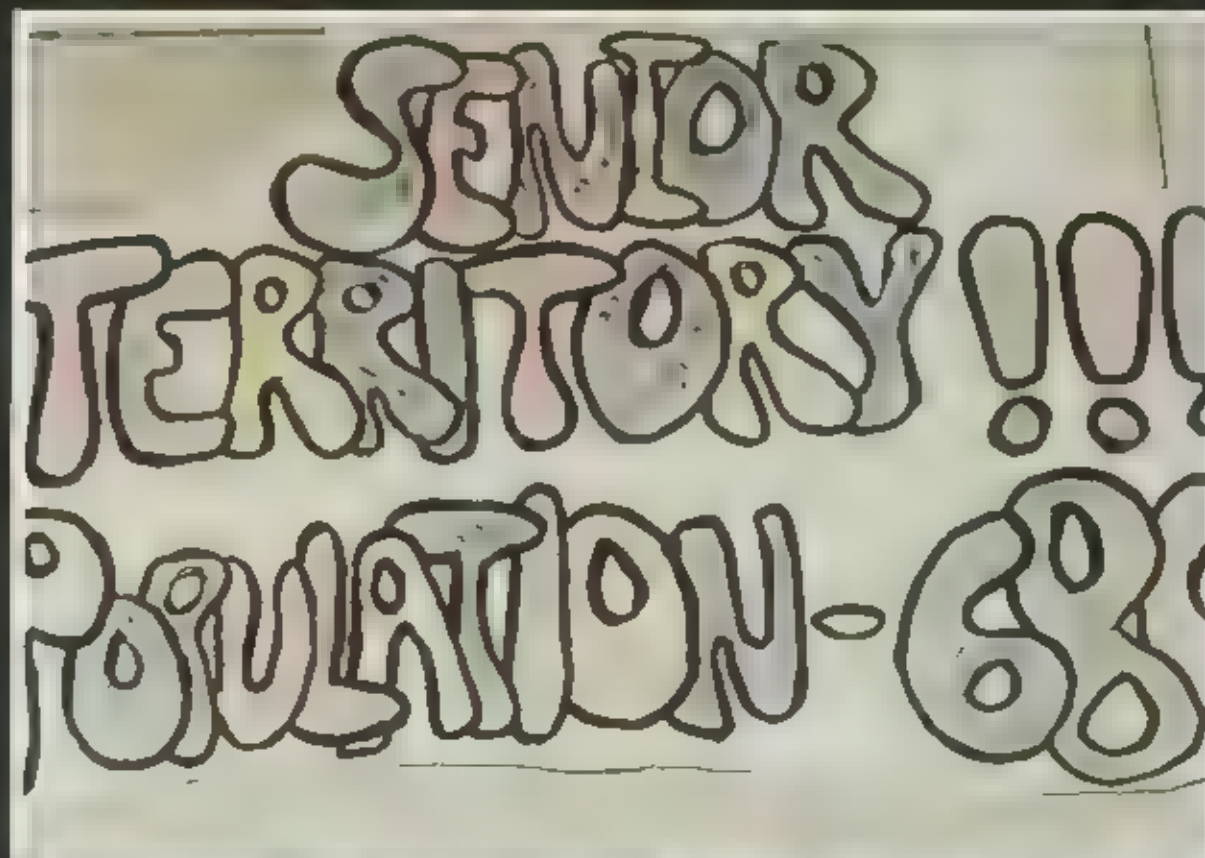 SENIOR
TERRITORY !!!
POPULATION - 68